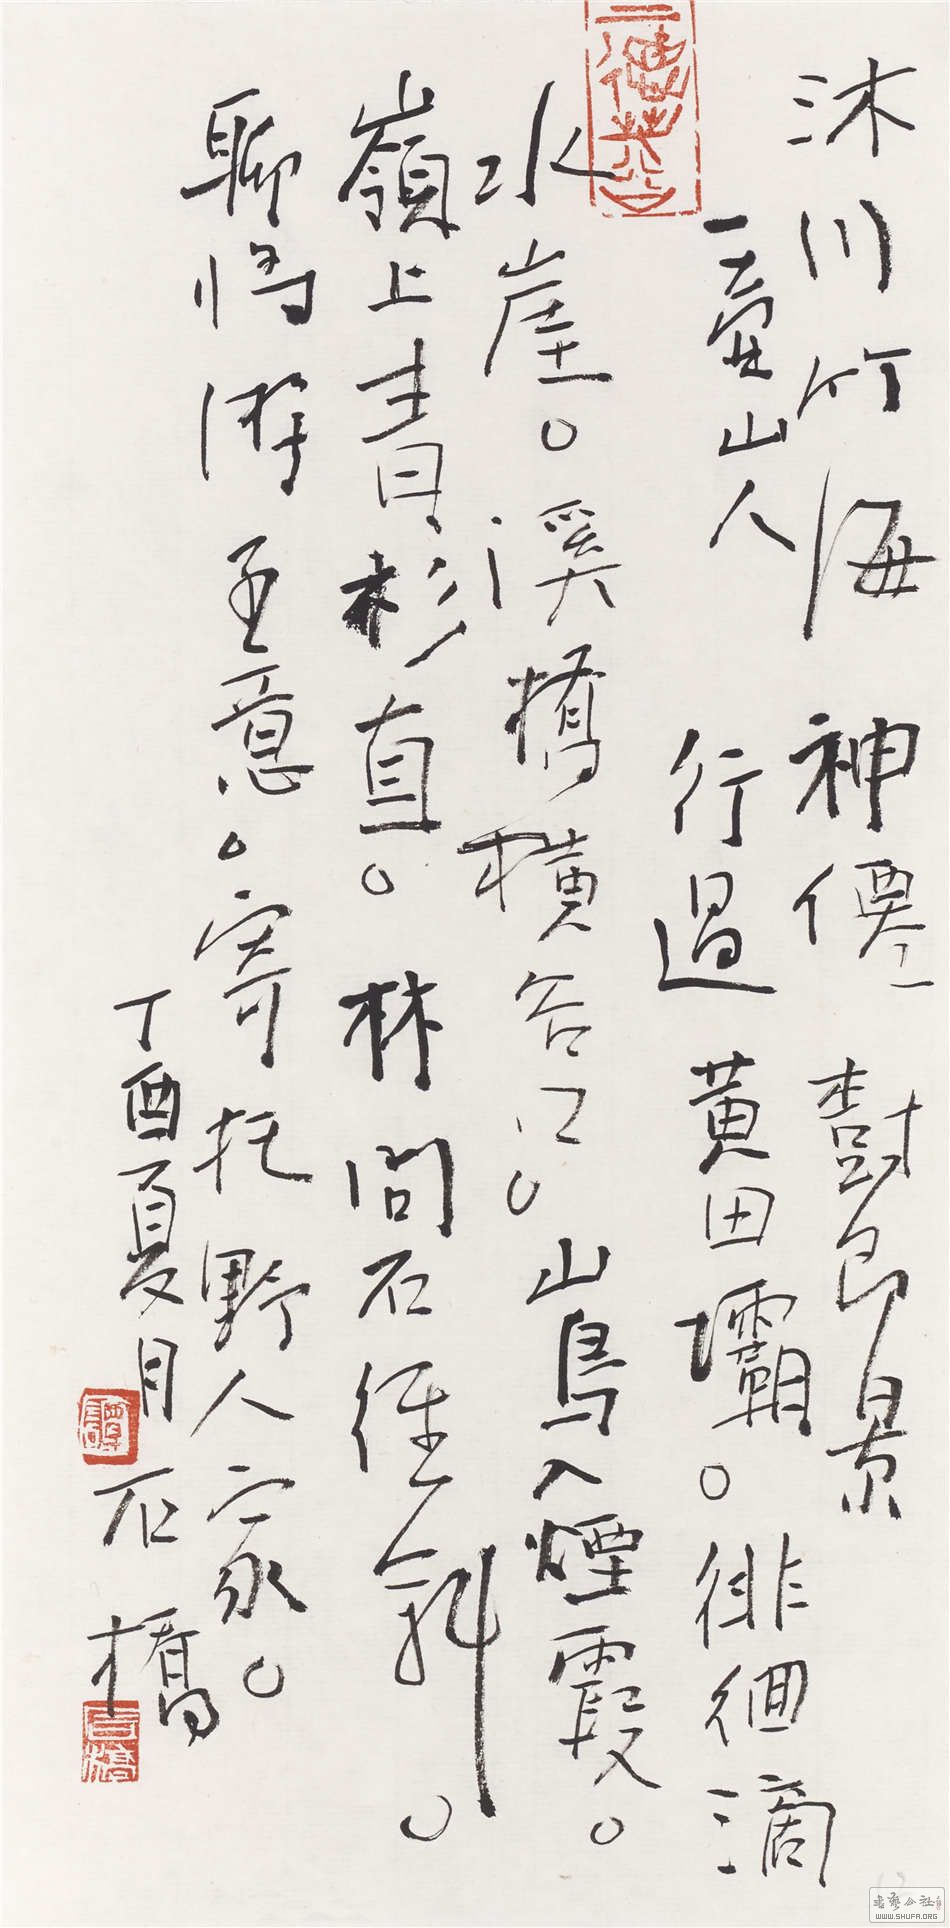 沐川竹海神僊樹即景
山人 行過黃田壩。徘徊滴
水崖。溪橋橫谷口。山鳥入煙霞。
嶺上青杉直。林間石徑斜。
聊將游至意。寄托野人家。
丁酉夏月 石橋
石橋
WWW.SHUFA.ORG